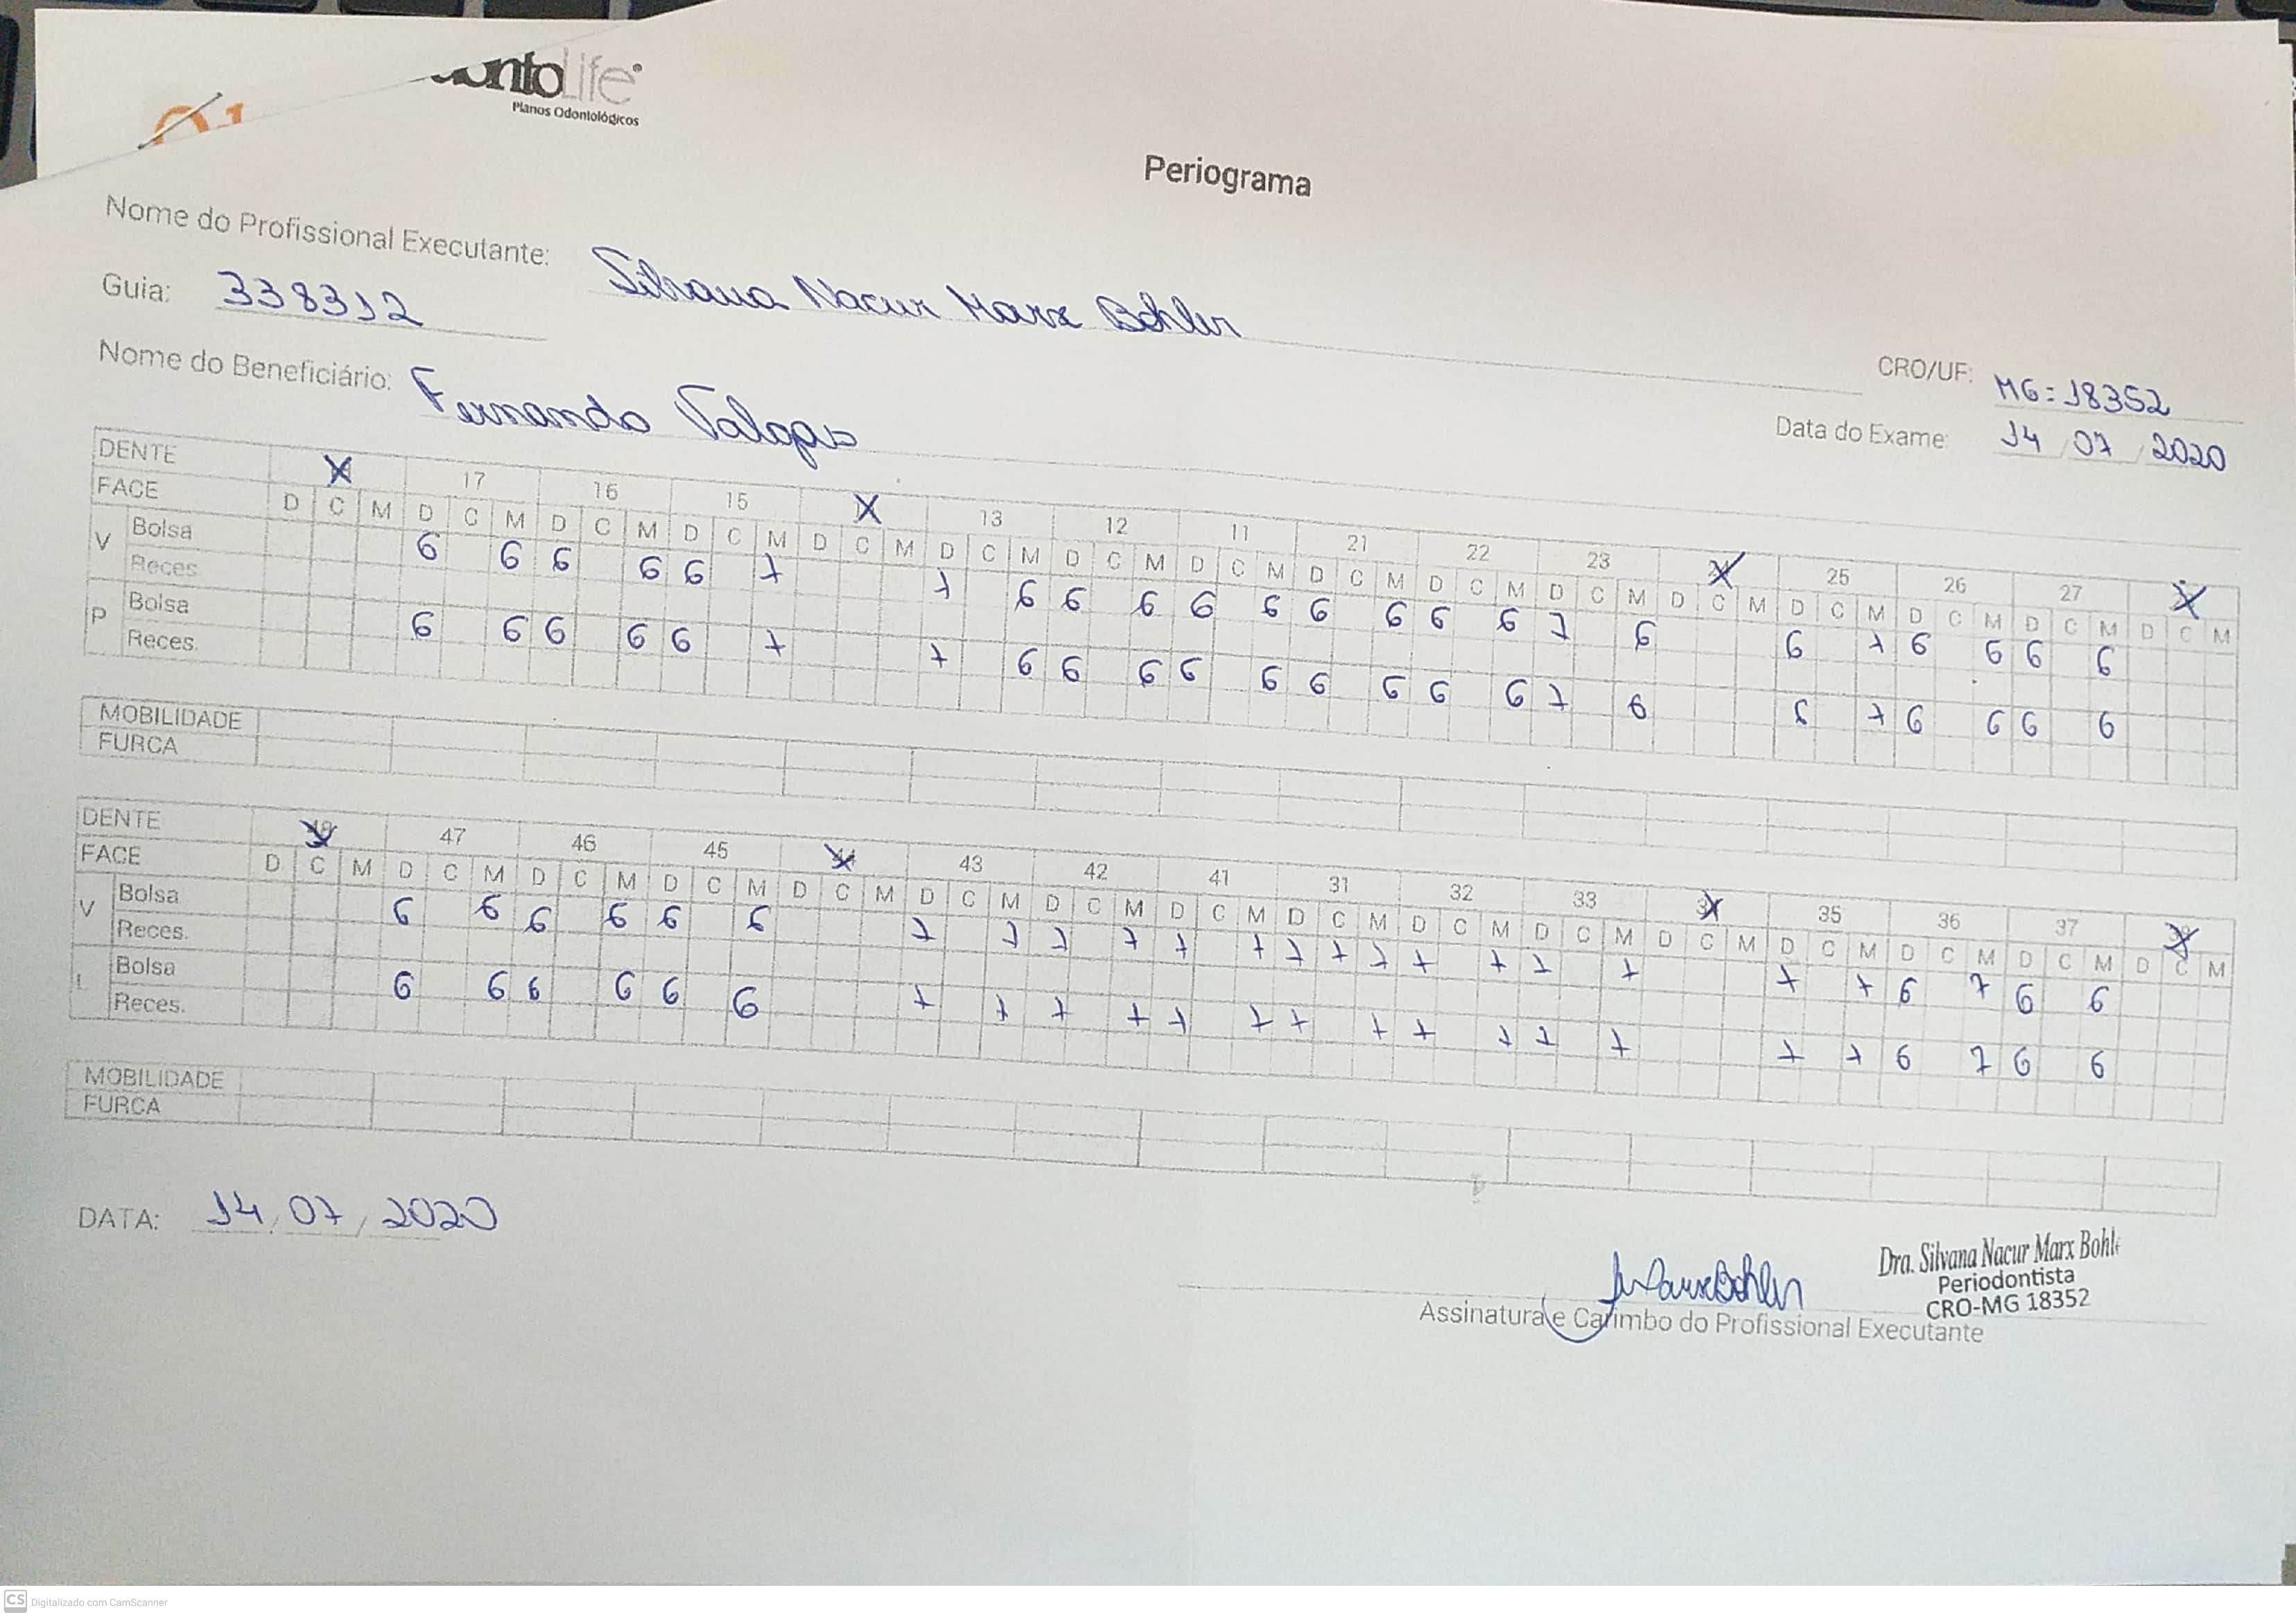 ontoLife
Planos Odontológicos
Periograma
Nome do Profissional Executante: Silvana Nacur Marx Bohler
Guia: 338312
CRO/UF: MG: 18352
Nome do Beneficiário: Fernando
Data do Exame: 14 / 07 / 2020
DENTE X 17 16 15 X 13 12 11 21 22 23 X 25 26 27 X
FACE D C M D C M D C M D C M D C M D C M D C M D C M D C M D C M D C M D C M D C M D C M D C M D C M
V Bolsa 6 6 6 6 6 7 7 6 6 6 6 6 6 6 6 6 7 6 6 7 6 6 6 6
Reces.
P Bolsa 6 6 6 6 6 7 7 6 6 6 6 6 6 6 6 6 7 6 7 6 6 6 6
Reces.
MOBILIDADE
FURCA
DENTE 47 46 45 43 42 41 31 32 33 X 35 36 37 X
FACE D C M D C M D C M D C M D C M D C M D C M D C M D C M D C M D C M D C M D C M D C M D C M D C M
V Bolsa 6 6 6 6 6 6 7 7 7 7 7 7 7 7 7 7 7 7 7 7 7 6 7 6 6
Reces.
L Bolsa 6 6 6 6 6 6 7 7 7 7 7 7 7 7 7 7 7 7 7 7 6 7 6 6
Reces.
MOBILIDADE
FURCA
DATA: 14 / 07 / 2020
Dra. Silvana Nacur Marx Bohle
Periodontista
CRO-MG 18352
Assinatura e Carimbo do Profissional Executante
CS Digitalizado com CamScanner